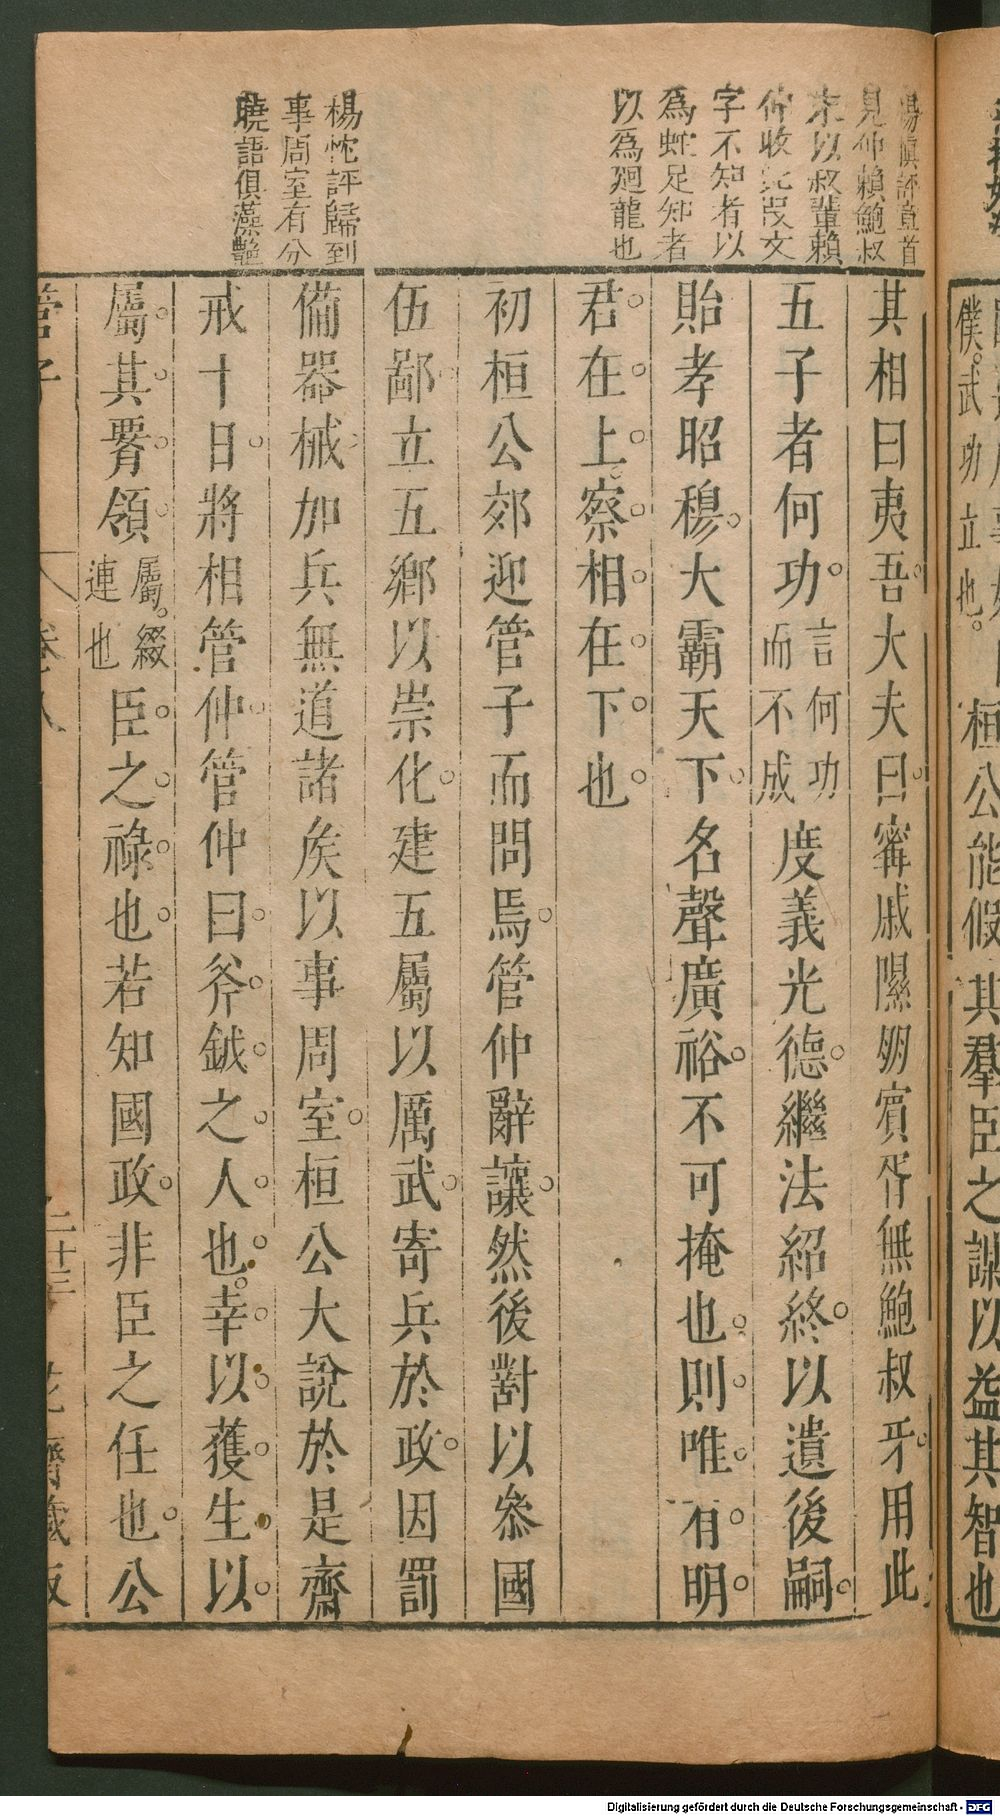 桓公能假其羣臣之謀以益其智也
僕。武功立也。
楊慎評章首
見仲賴鮑叔
末以叔輩賴
仲收此段文
字不知者以
為蛇足知者
以為廻龍也
楊忱評歸到
事周室有分
曉語俱藻艷
其相曰夷吾大夫曰甯戚隰朋賓胥無鮑叔牙用此
五子者何功言何功而不成度義光德繼法紹終以遺後嗣
貽孝昭穆大霸天下名聲廣裕不可掩也則唯有明
君在上察相在下也
初桓公郊迎管子而問焉管仲辭讓然後對以參國
伍鄙立五鄉以崇化建五屬以厲武寄兵於政因罰
備器械加兵無道諸矦以事周室桓公大說於是齋
戒十日將相管仲管仲曰斧鉞之人也幸以獲生以
屬其腰領屬。綴連也臣之祿也若知國政非臣之任也公
管子
卷八
二十三
花齋藏板
Digitalisierung gefördert durch die Deutsche Forschungsgemeinschaft - DFG